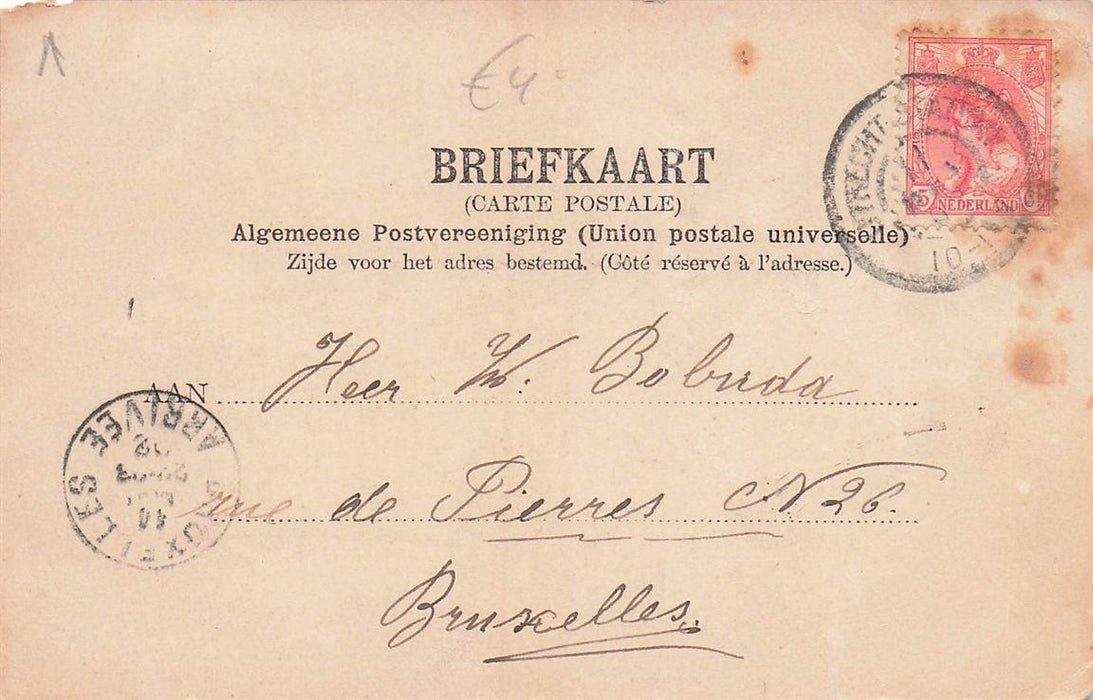 €4-
BRIEFKAART
(CARTE POSTALE)
Algemeene Postvereeniging (Union postale universelle)
Zijde voor het adres bestemd. (Côté réservé à l'adresse.)
NEDERLAND
UTRECHT STATION
10-
AAN Heer W. Bobuda
rue de Pierres N 26.
Bruxelles.
BRUXELLES
ARRIVÉE
11